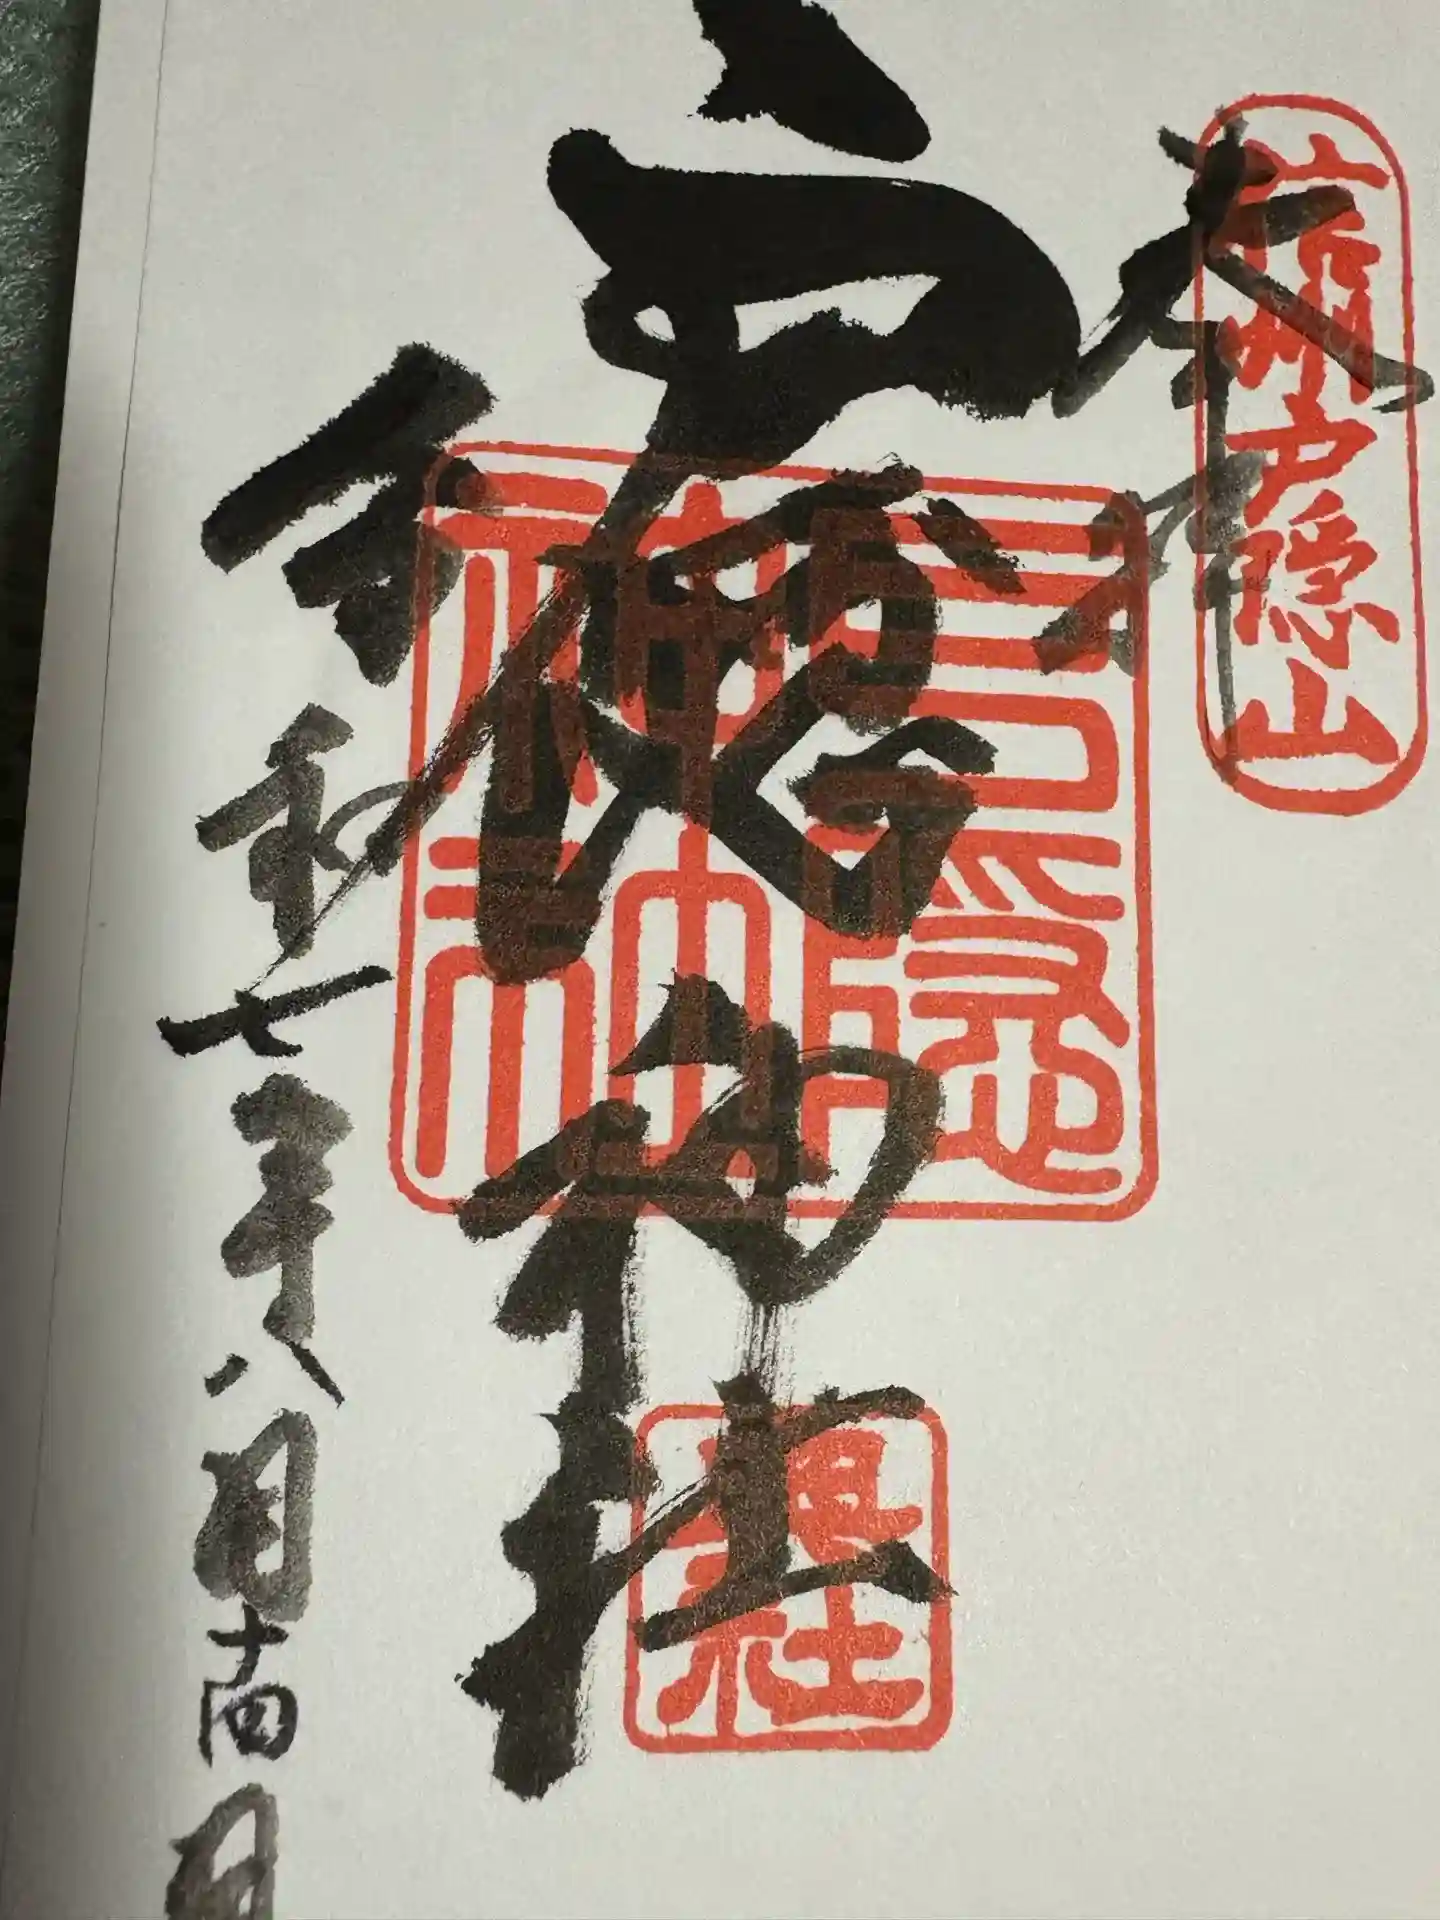 奉拝
信州戸隠山
戸隠神社
戸隠神社中社
令和七年八月十四日